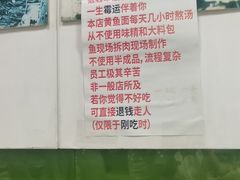 一生霉运伴着你
本店黄鱼面每天几小时熬汤
从不使用味精和大料包
鱼现场拆肉现场制作
不使用半成品，流程复杂
员工极其辛苦
非一般店所及
若你觉得不好吃
可直接退钱走人
（仅限于刚吃时）